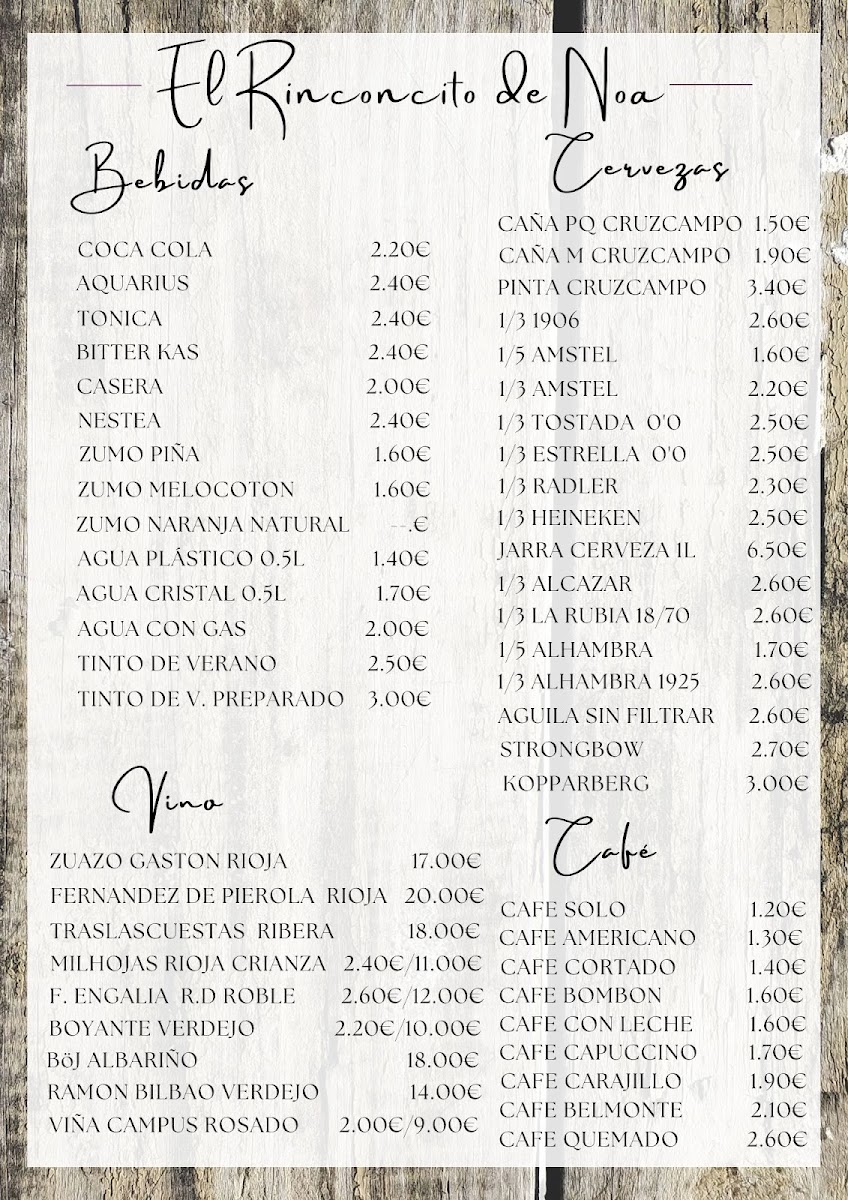 El Rinconcito de Noa
Bebidas
COCA COLA 2.20€
AQUARIUS 2.40€
TONICA 2.40€
BITTER KAS 2.40€
CASERA 2.00€
NESTEA 2.40€
ZUMO PIÑA 1.60€
ZUMO MELOCOTON 1.60€
ZUMO NARANJA NATURAL --.€
AGUA PLÁSTICO 0.5L 1.40€
AGUA CRISTAL 0.5L 1.70€
AGUA CON GAS 2.00€
TINTO DE VERANO 2.50€
TINTO DE V. PREPARADO 3.00€
Vino
ZUAZO GASTON RIOJA 17.00€
FERNANDEZ DE PIEROLA RIOJA 20.00€
TRASLASCUESTAS RIBERA 18.00€
MILHOJAS RIOJA CRIANZA 2.40€/11.00€
F. ENGALIA R.D ROBLE 2.60€/12.00€
BOYANTE VERDEJO 2.20€/10.00€
BöJ ALBARIÑO 18.00€
RAMON BILBAO VERDEJO 14.00€
VIÑA CAMPUS ROSADO 2.00€/9.00€
Cervezas
CAÑA PQ CRUZCAMPO 1.50€
CAÑA M CRUZCAMPO 1.90€
PINTA CRUZCAMPO 3.40€
1/3 1906 2.60€
1/5 AMSTEL 1.60€
1/3 AMSTEL 2.20€
1/3 TOSTADA 0'0 2.50€
1/3 ESTRELLA 0'0 2.50€
1/3 RADLER 2.30€
1/3 HEINEKEN 2.50€
JARRA CERVEZA 1L 6.50€
1/3 ALCAZAR 2.60€
1/3 LA RUBIA 18/70 2.60€
1/5 ALHAMBRA 1.70€
1/3 ALHAMBRA 1925 2.60€
AGUILA SIN FILTRAR 2.60€
STRONGBOW 2.70€
KOPPARBERG 3.00€
Café
CAFE SOLO 1.20€
CAFE AMERICANO 1.30€
CAFE CORTADO 1.40€
CAFE BOMBON 1.60€
CAFE CON LECHE 1.60€
CAFE CAPUCCINO 1.70€
CAFE CARAJILLO 1.90€
CAFE BELMONTE 2.10€
CAFE QUEMADO 2.60€